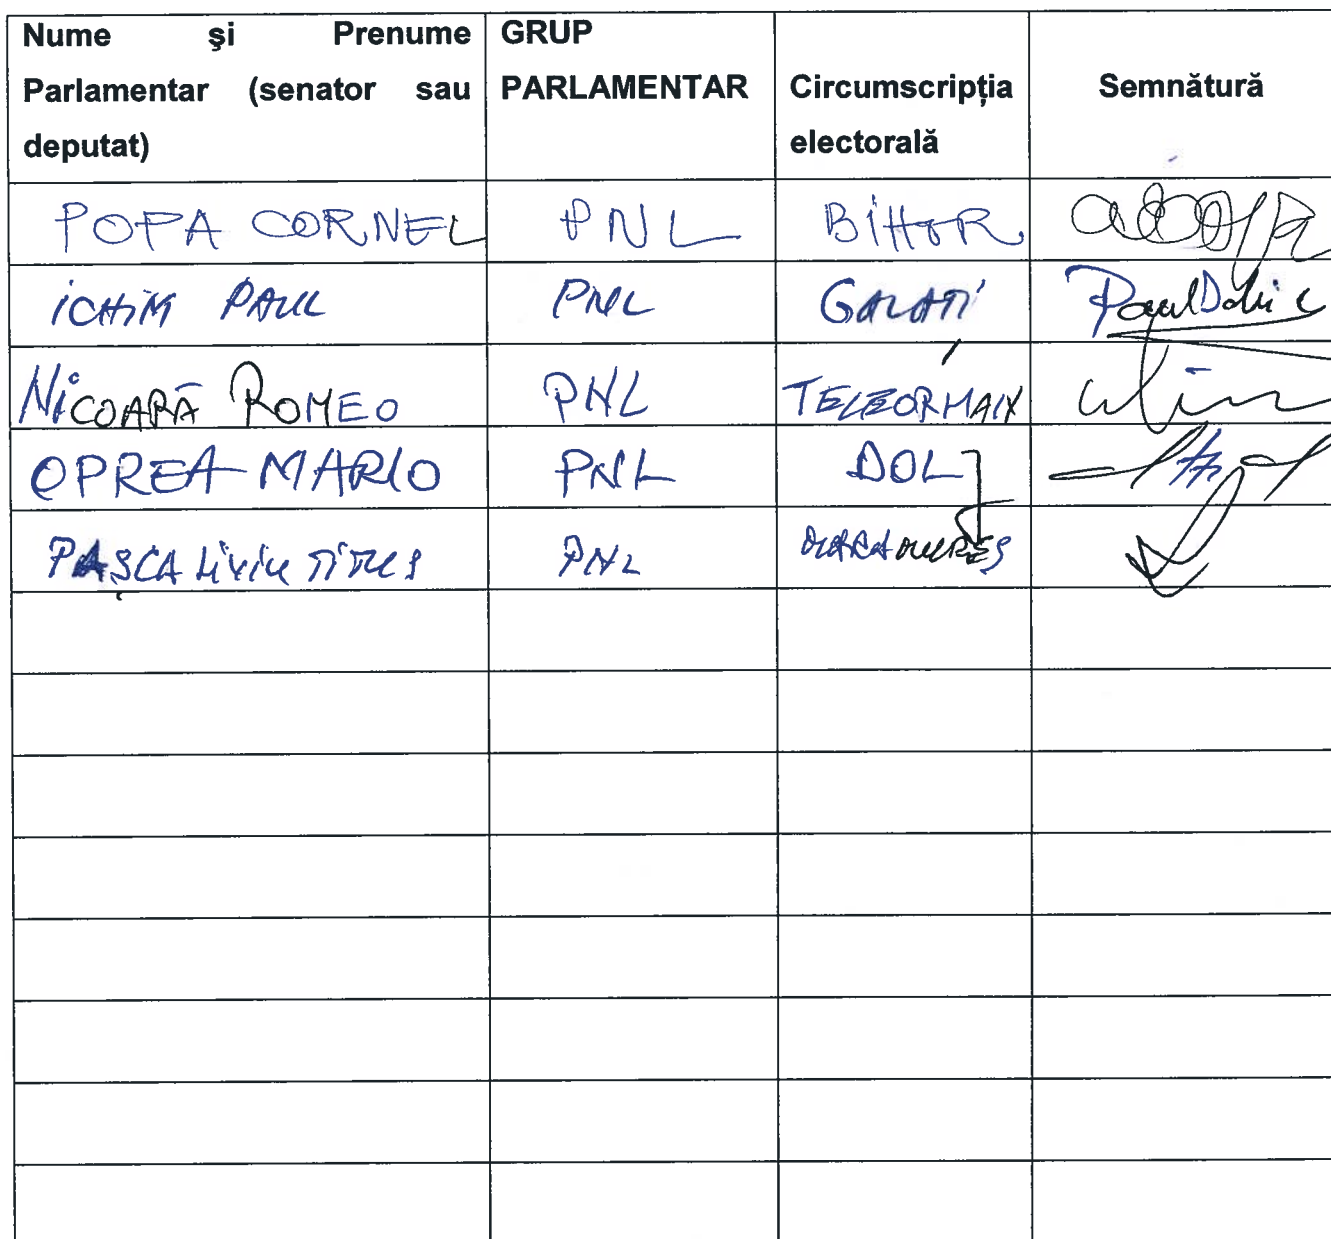 Nume și Prenume
Parlamentar (senator sau
deputat)
GRUP
PARLAMENTAR
Circumscripția
electorală
Semnătură
POPA CORNEL PNL BIHOR
ICHIM PAUL PNL GALAȚI
NICOARĂ ROMEO PNL TELEORMAN
OPREA MARIO PNL DOLJ
PAȘCA LIVIU TITUS PNL MARAMUREȘ